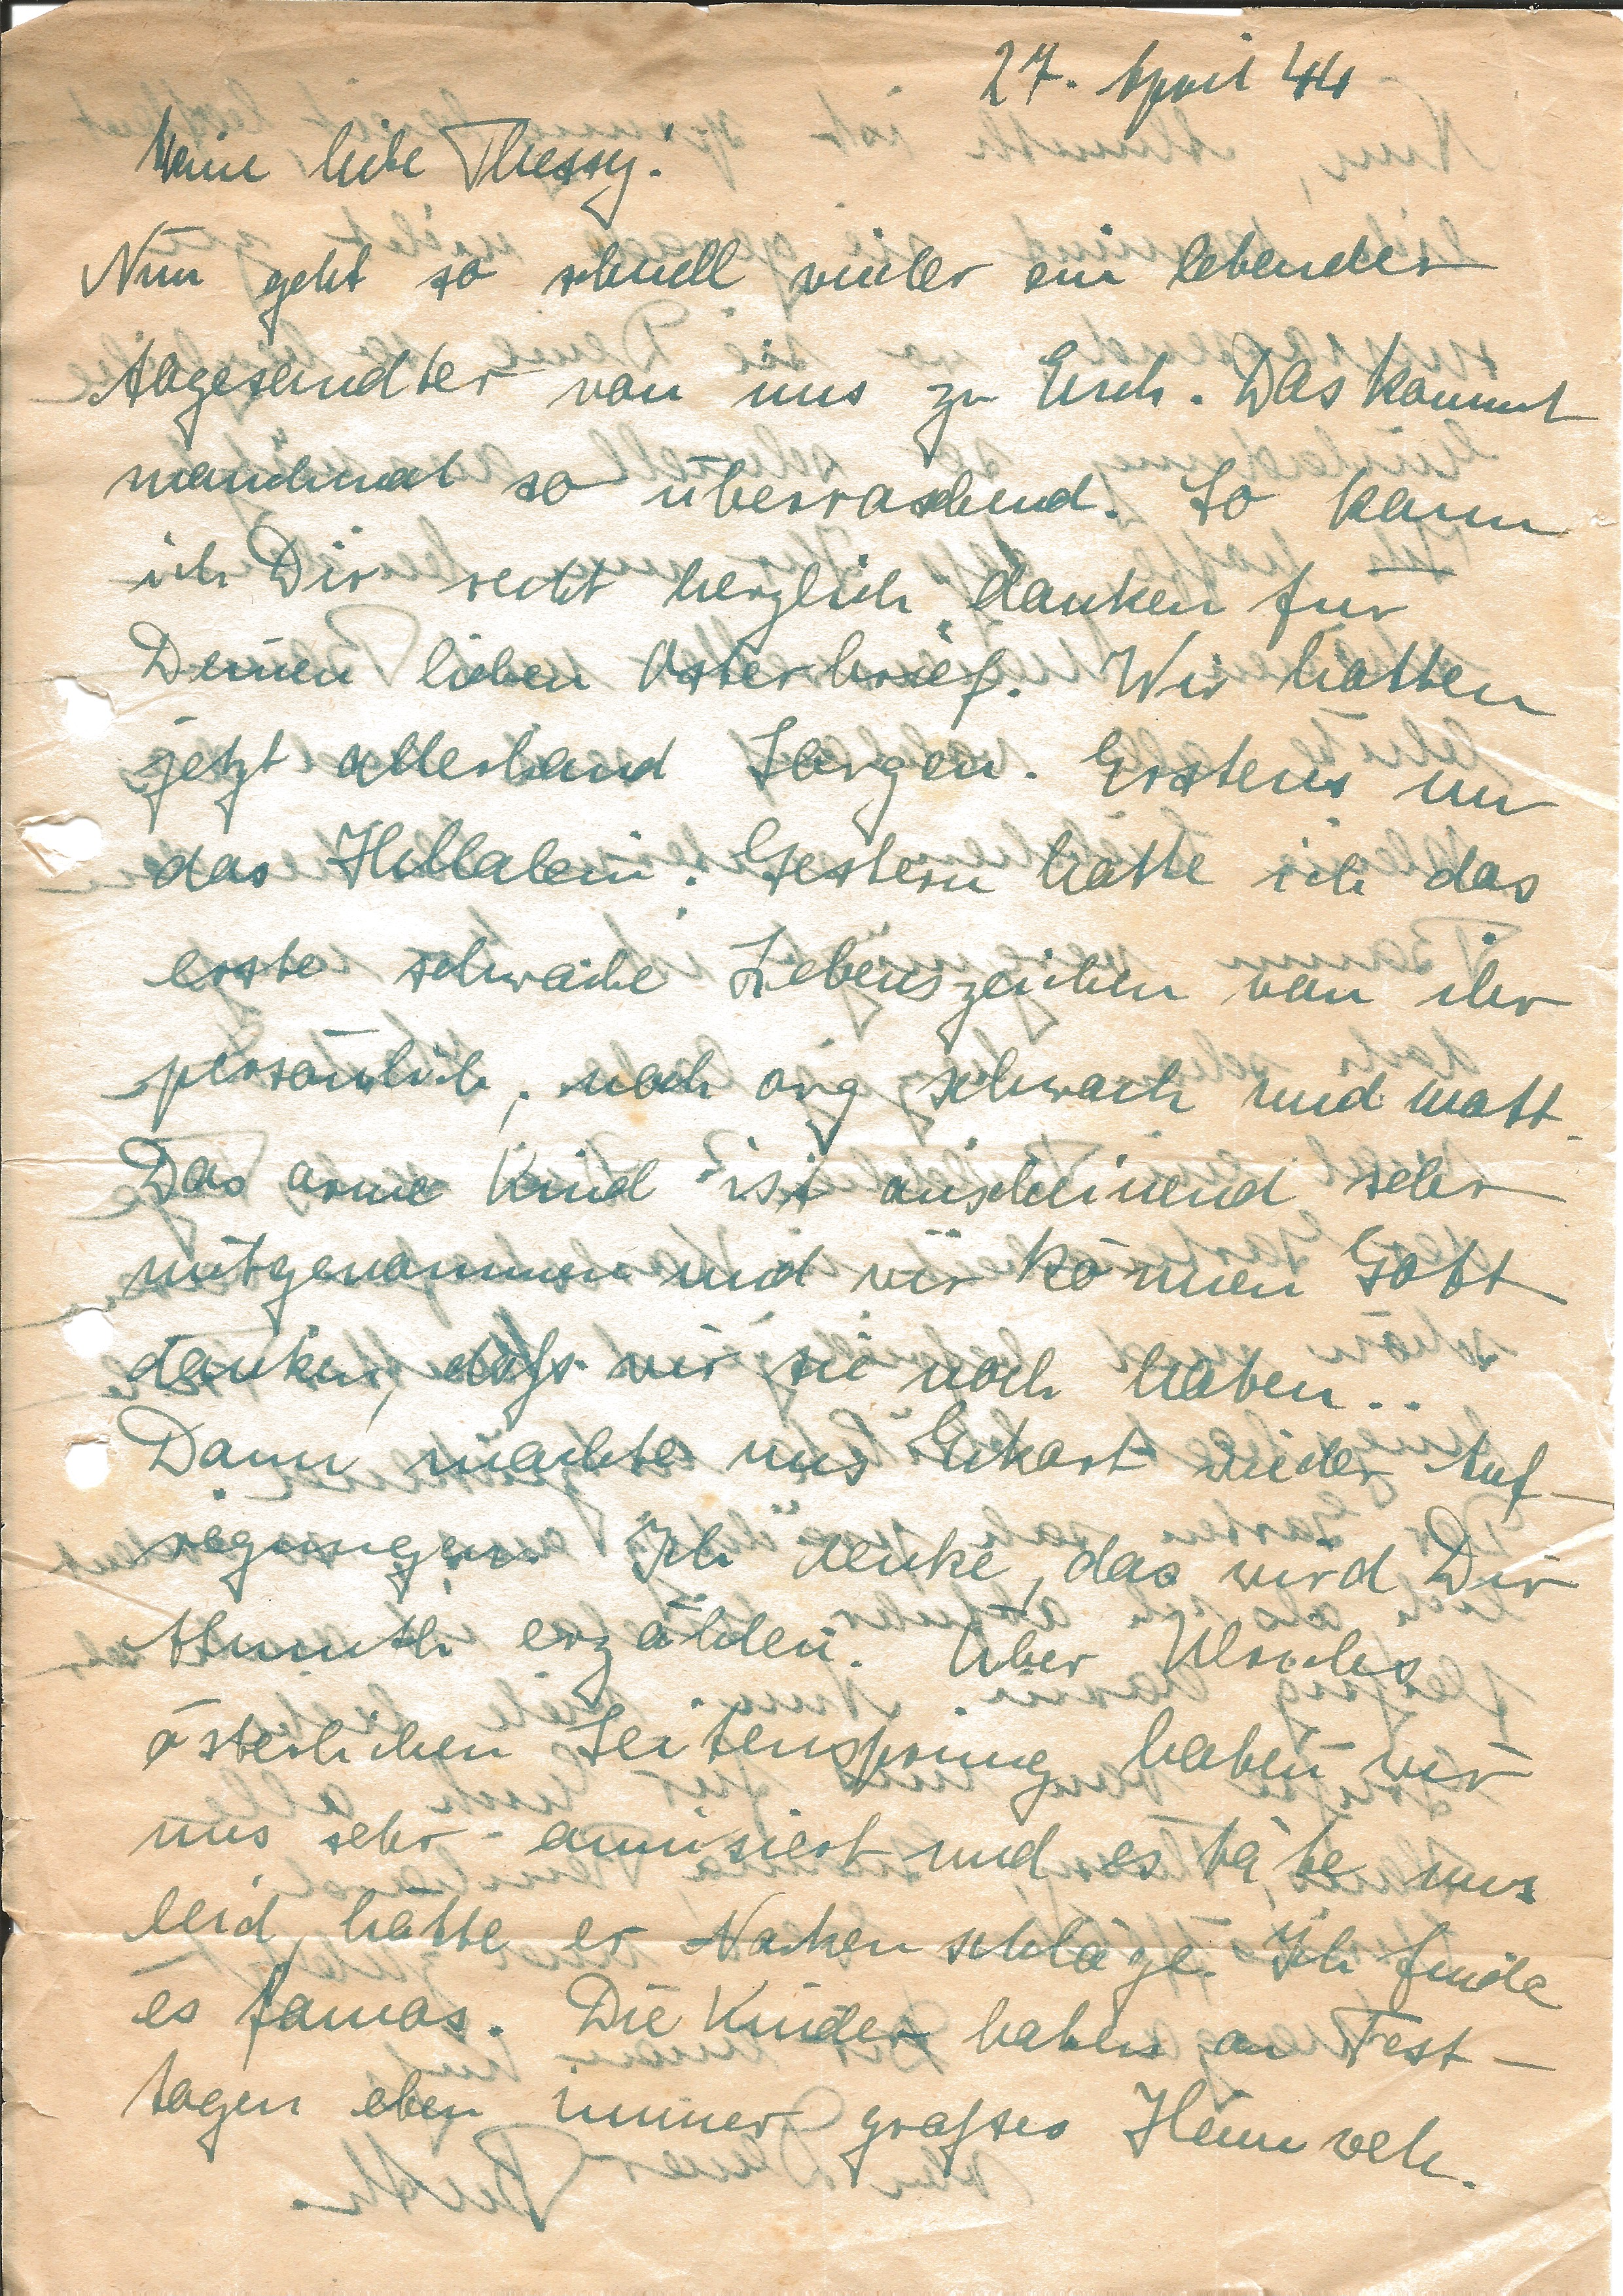 27. April 44
Meine liebe Thessy!
Nun geht so schnell wieder ein lebender
Abgesandter von uns zu Euch. Das kommt
manchmal so überraschend. So kann
ich Dir recht herzlich danken für
Deinen lieben Osterbrief. Wir hatten
jetzt allerhand Sorgen. Erstens um
das Hellalein. Gestern hatte ich das
erste schwache Lebenszeichen von ihr
persönlich, noch arg schwach und matt.
Das arme Kind ist anscheinend sehr
mitgenommen und wir können Gott
danken, daß wir sie noch haben..
Dann machte uns Eckart wieder Auf-
regungen. Ich denke, das wird Dir
Almuth erzählen. Über Ulrichs
österlichen Seitensprung haben wir
uns sehr amüsiert und es täte uns
leid, hätte er Nackenschläge. Ich finde
es famos. Die Kinder haben an Fest-
tagen eben immer großes Heimweh.